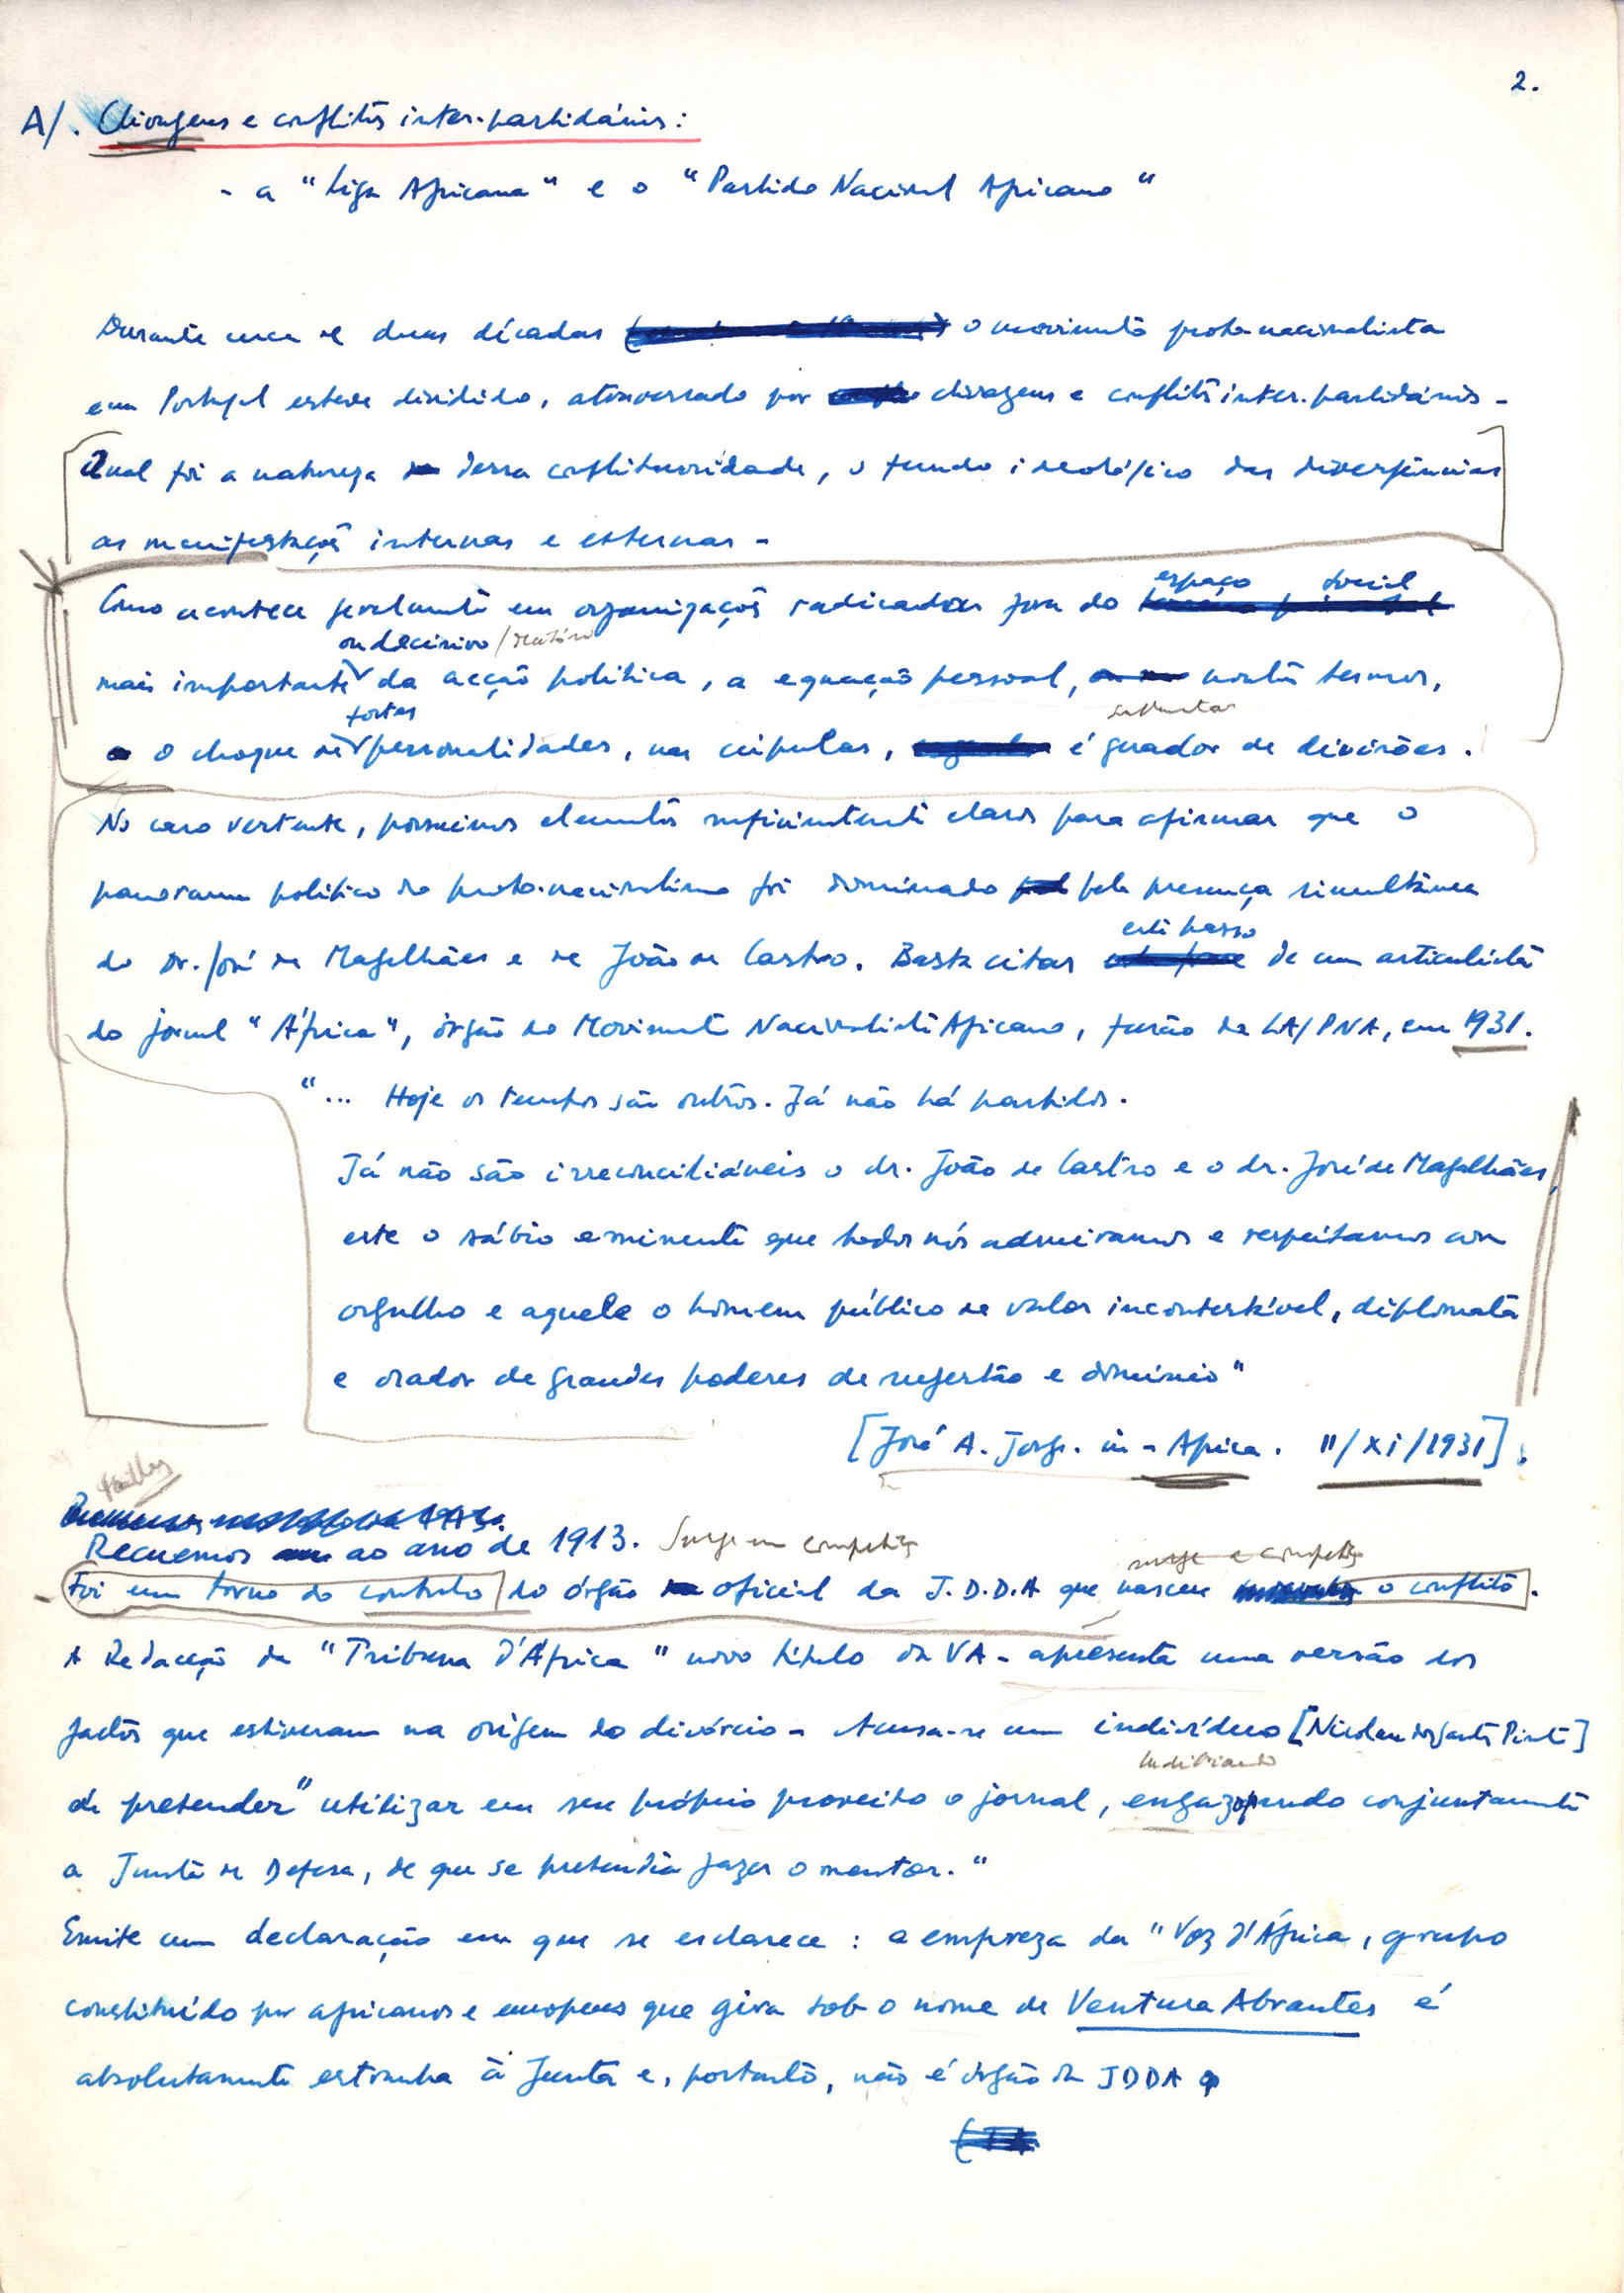 2.
A/. Clivagens e conflitos inter-partidários:
- a "Liga Africana" e o "Partido Nacional Africano"
Durante cerca de duas décadas o movimento proto-nacionalista
em Portugal esteve dividido, atravessado por clivagens e conflitos inter-partidários -
Qual foi a natureza dessa conflituosidade, o fundo ideológico das divergências
as manifestações internas e externas -
espaço social
Como acontece geralmente em organizações radicadas fora do
ou decisivo /
mais importante da acção política, a equação pessoal, noutros termos,
fortes
o choque de personalidades, nas cúpulas, é gerador de divisões.
No caso vertente, possuimos elementos suficientemente claros para afirmar que o
panorama político do proto-nacionalismo foi dominado pela presença simultânea
este passo
do Dr. José de Magalhães e de João de Castro. Basta citar de um articulista
do jornal "África", órgão do Movimento Nacionalista Africano, fusão da LA/PNA, em 1931.
"... Hoje os tempos são outros. Já não há partidos.
Já não são irreconciliáveis o dr. João de Castro e o dr. José de Magalhães,
este o sábio eminente que todos nós admiramos e respeitamos com
orgulho e aquele o homem público de valor incontestável, diplomata
e orador de grandes poderes de sugestão e domínio"
[José A. Jorge. in - Africa. 11/XI/1931].
Recuemos ao ano de 1913. Surgem
Foi em torno do controlo do órgão oficial da J.D.D.A que nasceu o conflito.
A Redacção da "Tribuna D'África" novo título da VA - apresenta uma versão dos
factos que estiveram na origem do divórcio - Acusa-se um indivíduo [Nicolau dos Santos Pinto]
ludibriando
de pretender "utilizar em seu próprio proveito o jornal, engazopando conjuntamente
a Junta de Defesa, de que se pretendia fazer o mentor."
Emite um declaração em que se esclarece : a empreza da "Voz d'África, grupo
constituído por africanos e europeus que gira sob o nome de Ventura Abrantes é
absolutamente estranha à Junta e, portanto, não é órgão da JDDA